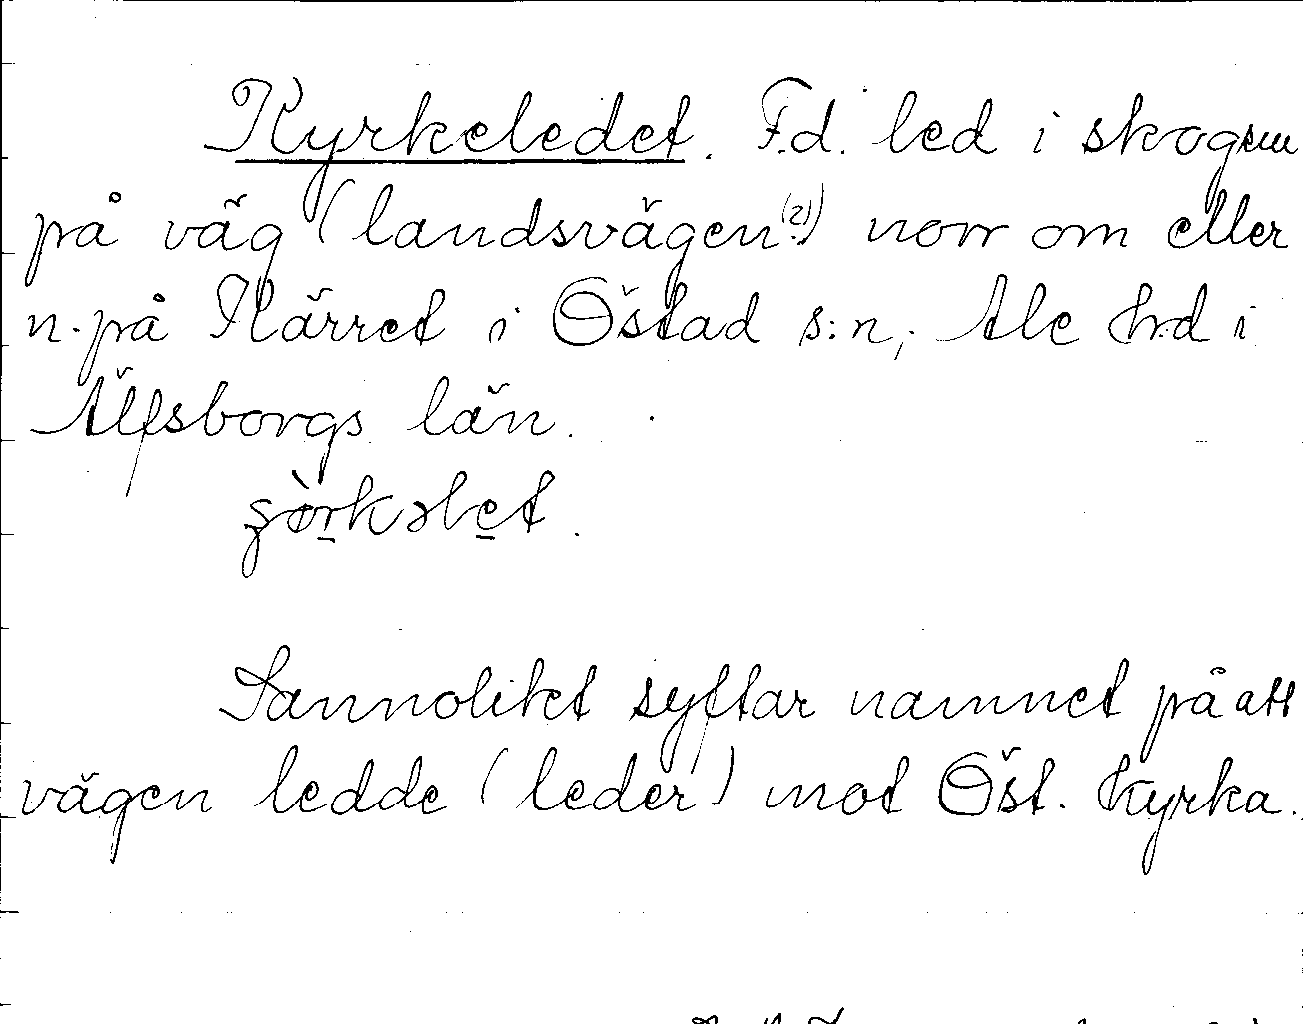 Kyrkeledet. F.d. led i skogen
på väg (landsvägen(?)) norr om eller
n. på Kärret i Östad s:n, Ale hrd i
Älfsborgs län.

Sannolikt syftar namnet på att
vägen ledde (leder) mot Öst. kyrka.